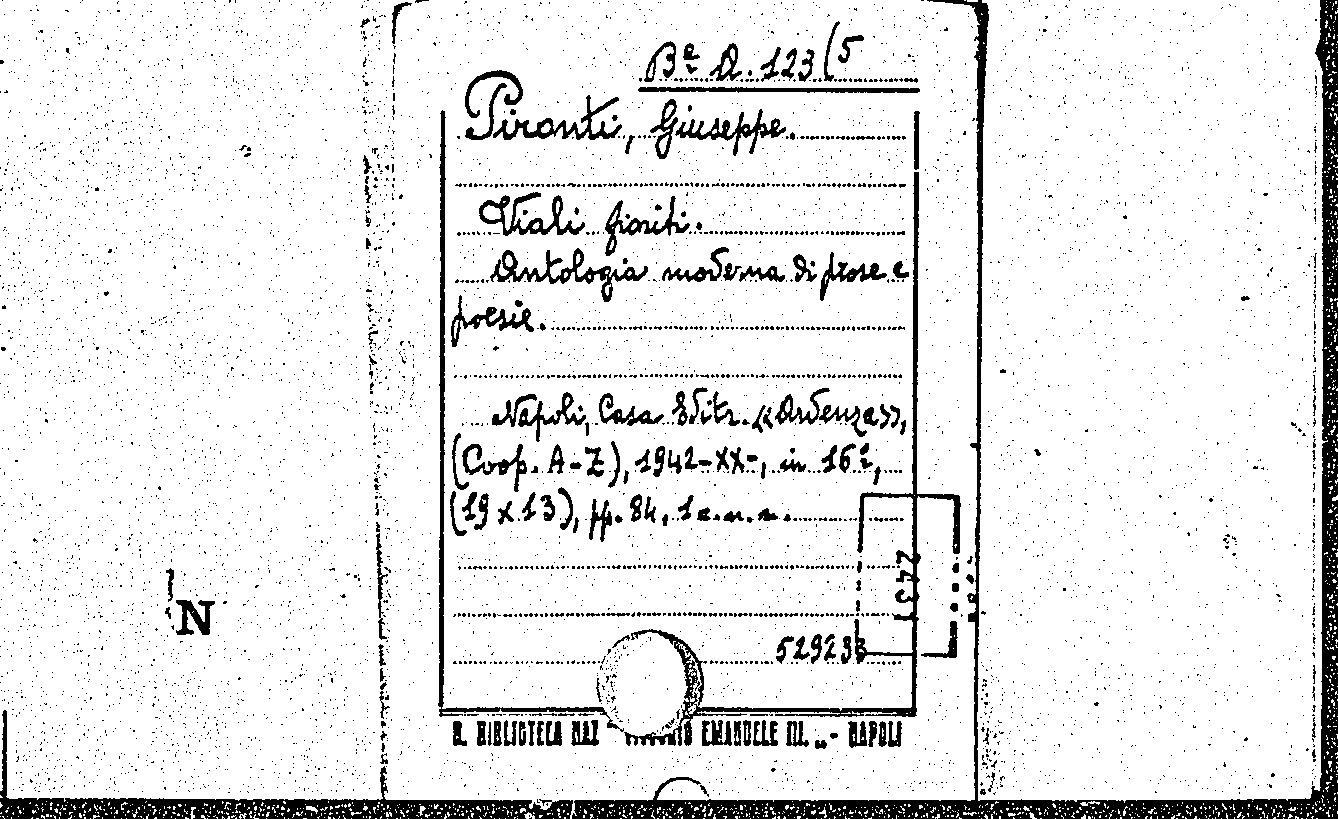 Bª Q. 123 (5
Pironti, Giuseppe.
Viali fioriti.
Antologia moderna di prose e
poesie.
Napoli, Casa Editr. «Ardenza»,
(Coop. A-Z), 1942-XX-, in 16º,
(19 x 13), pp. 84, 1 c.n.n.
N
529233
R. BIBLIOTECA NAZ EMANUELE III. „- NAPOLI